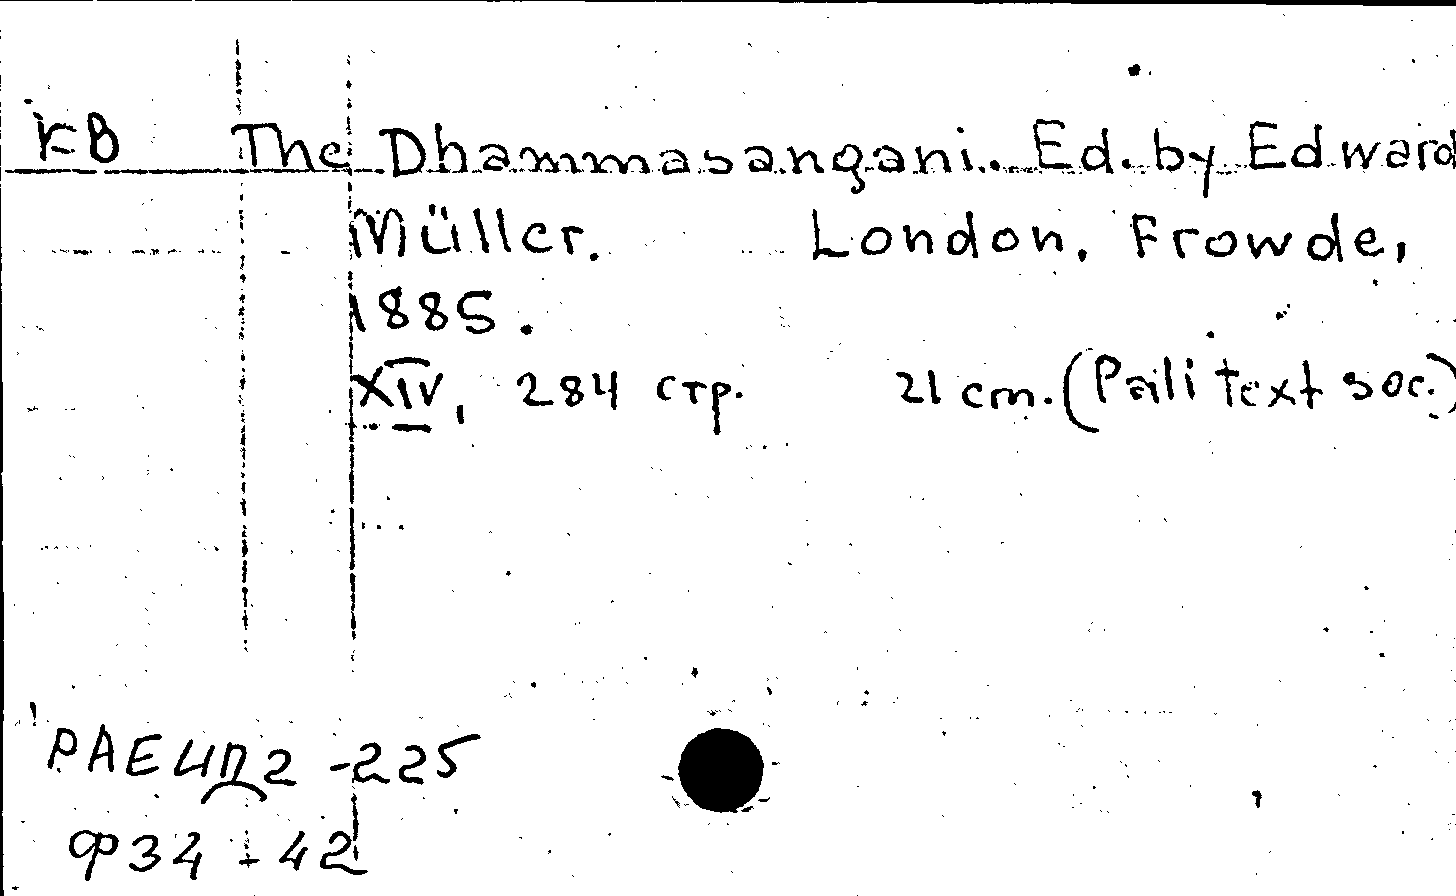 КВ The Dhammasangani. Ed. by Edward
Müller. London, Frowde,
1885.
XIV, 284 стр. 21 cm. (Paili text soc.)
РАЕ ИП2 -225
Ф34 - 42